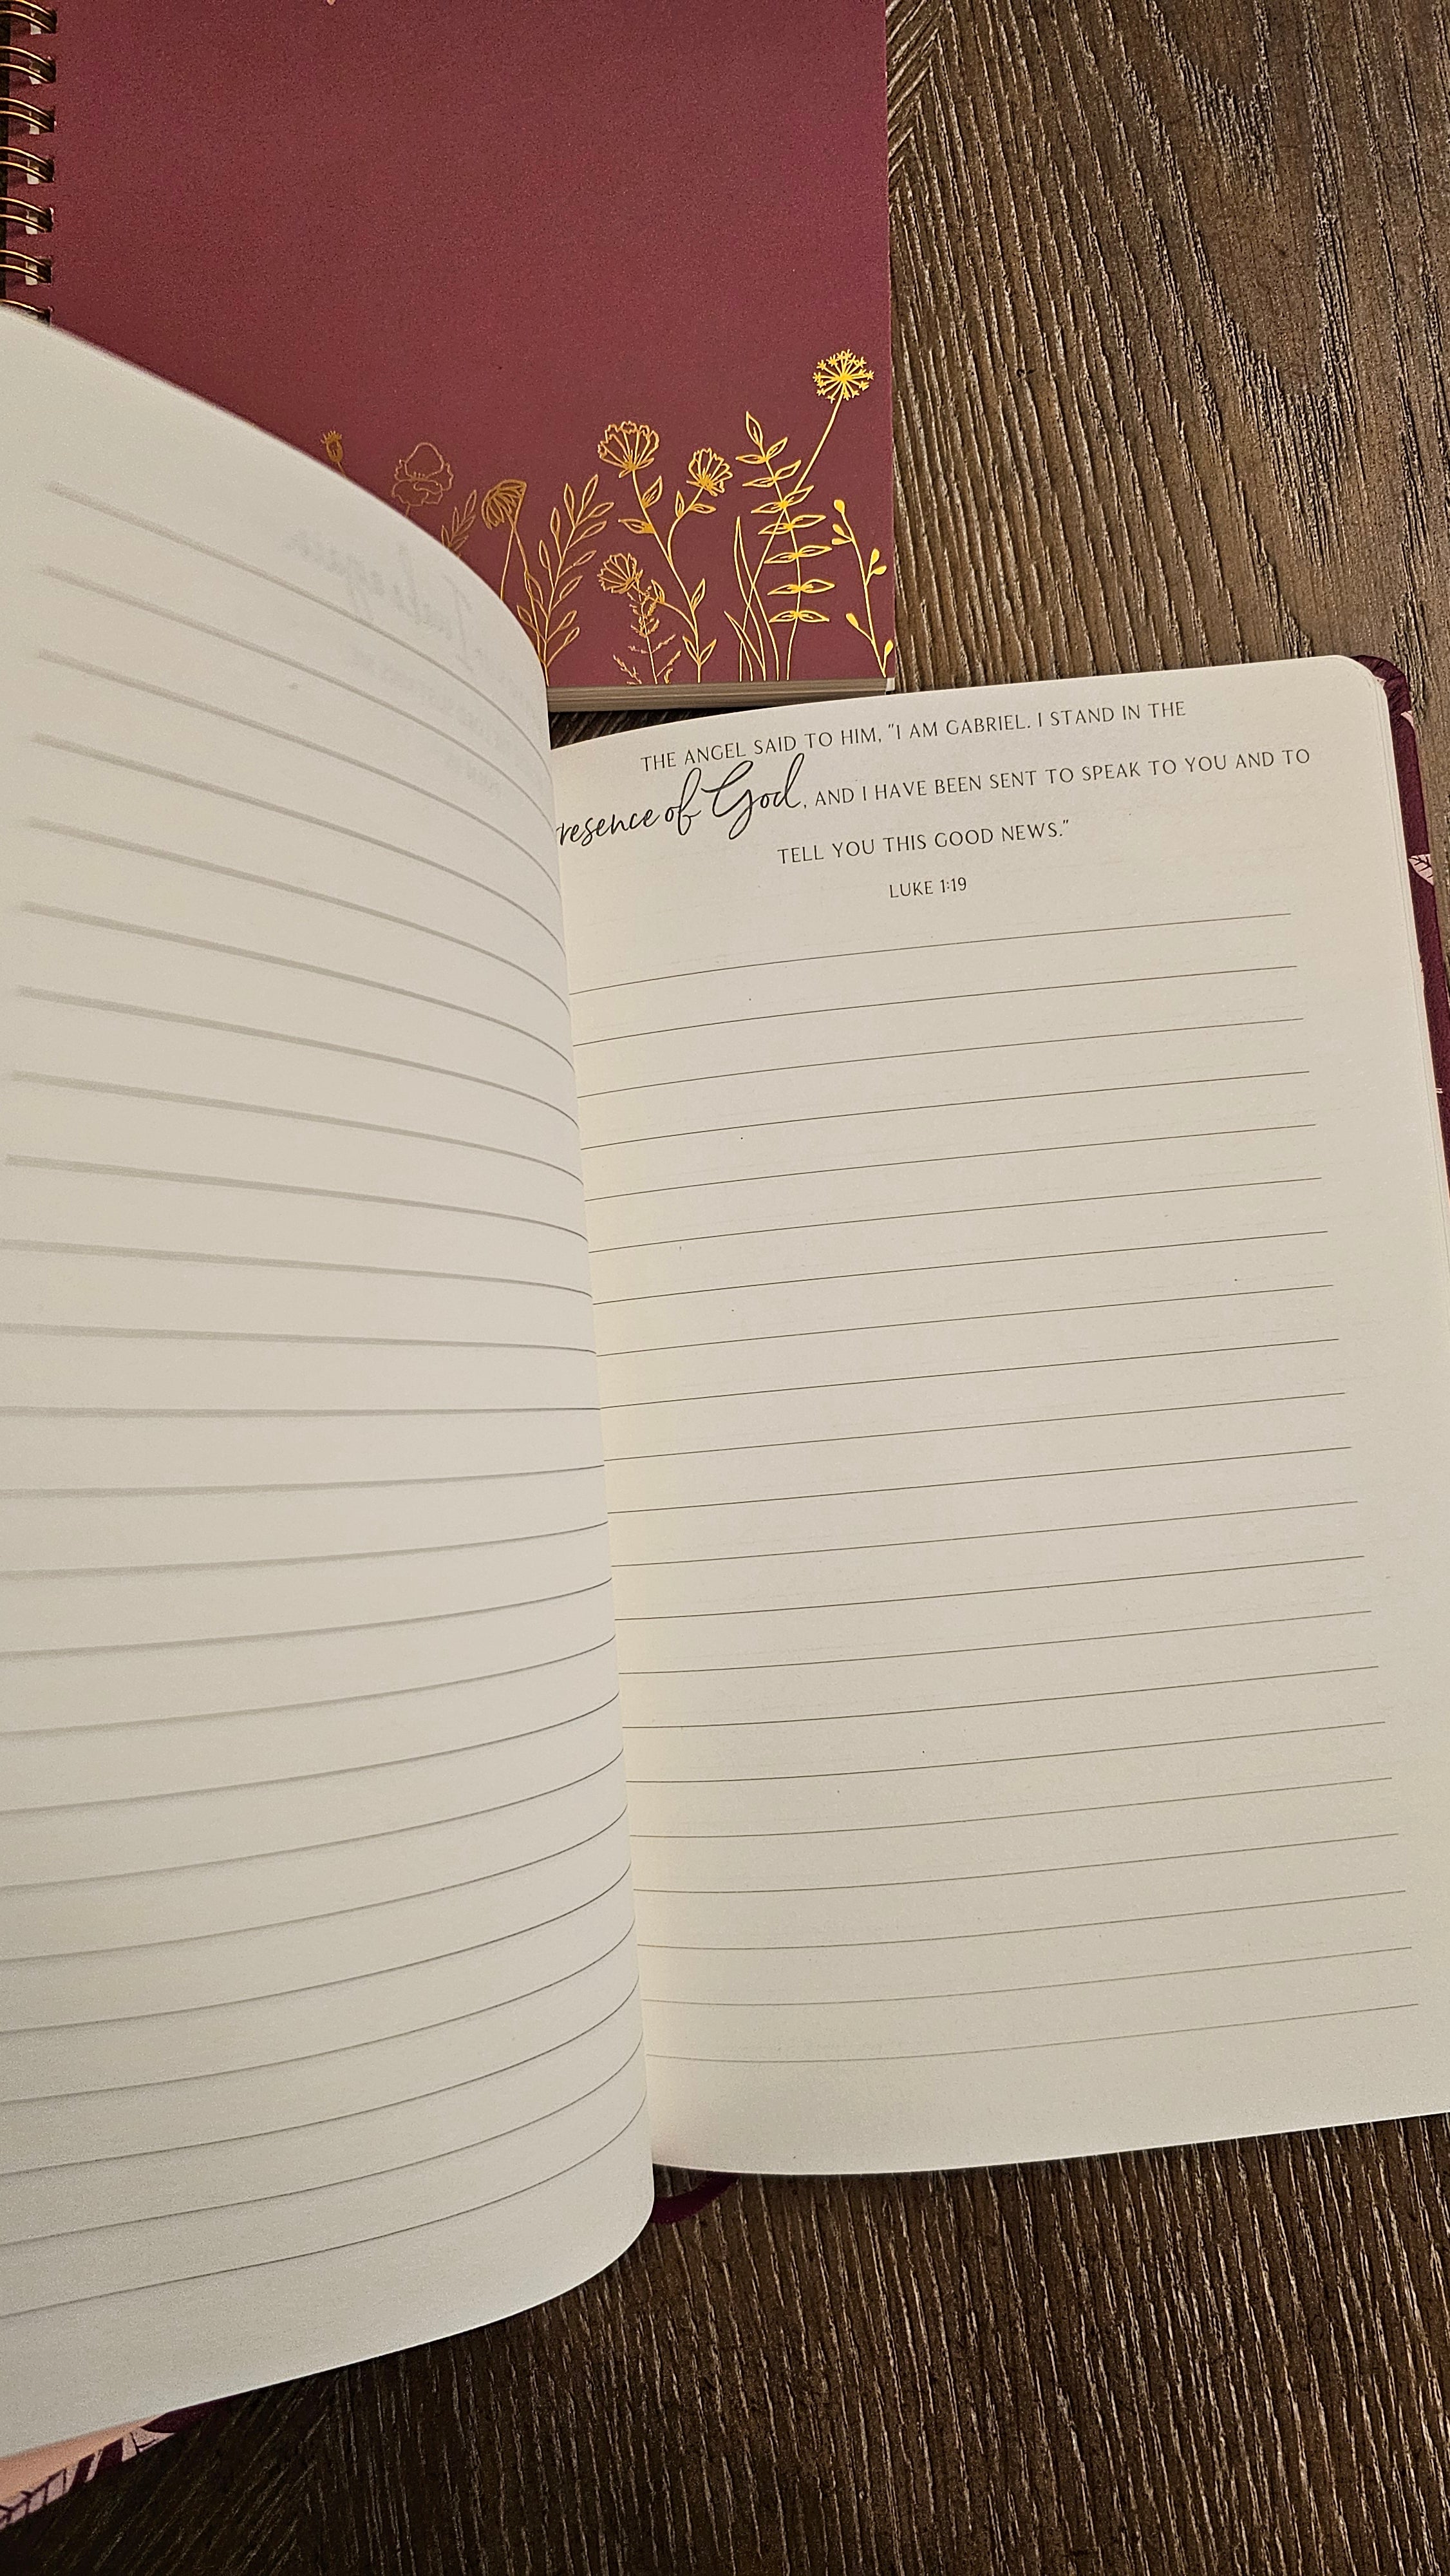 THE ANGEL SAID TO HIM, "I AM GABRIEL. I STAND IN THE
resence of God, AND I HAVE BEEN SENT TO SPEAK TO YOU AND TO
TELL YOU THIS GOOD NEWS."
LUKE 1:19